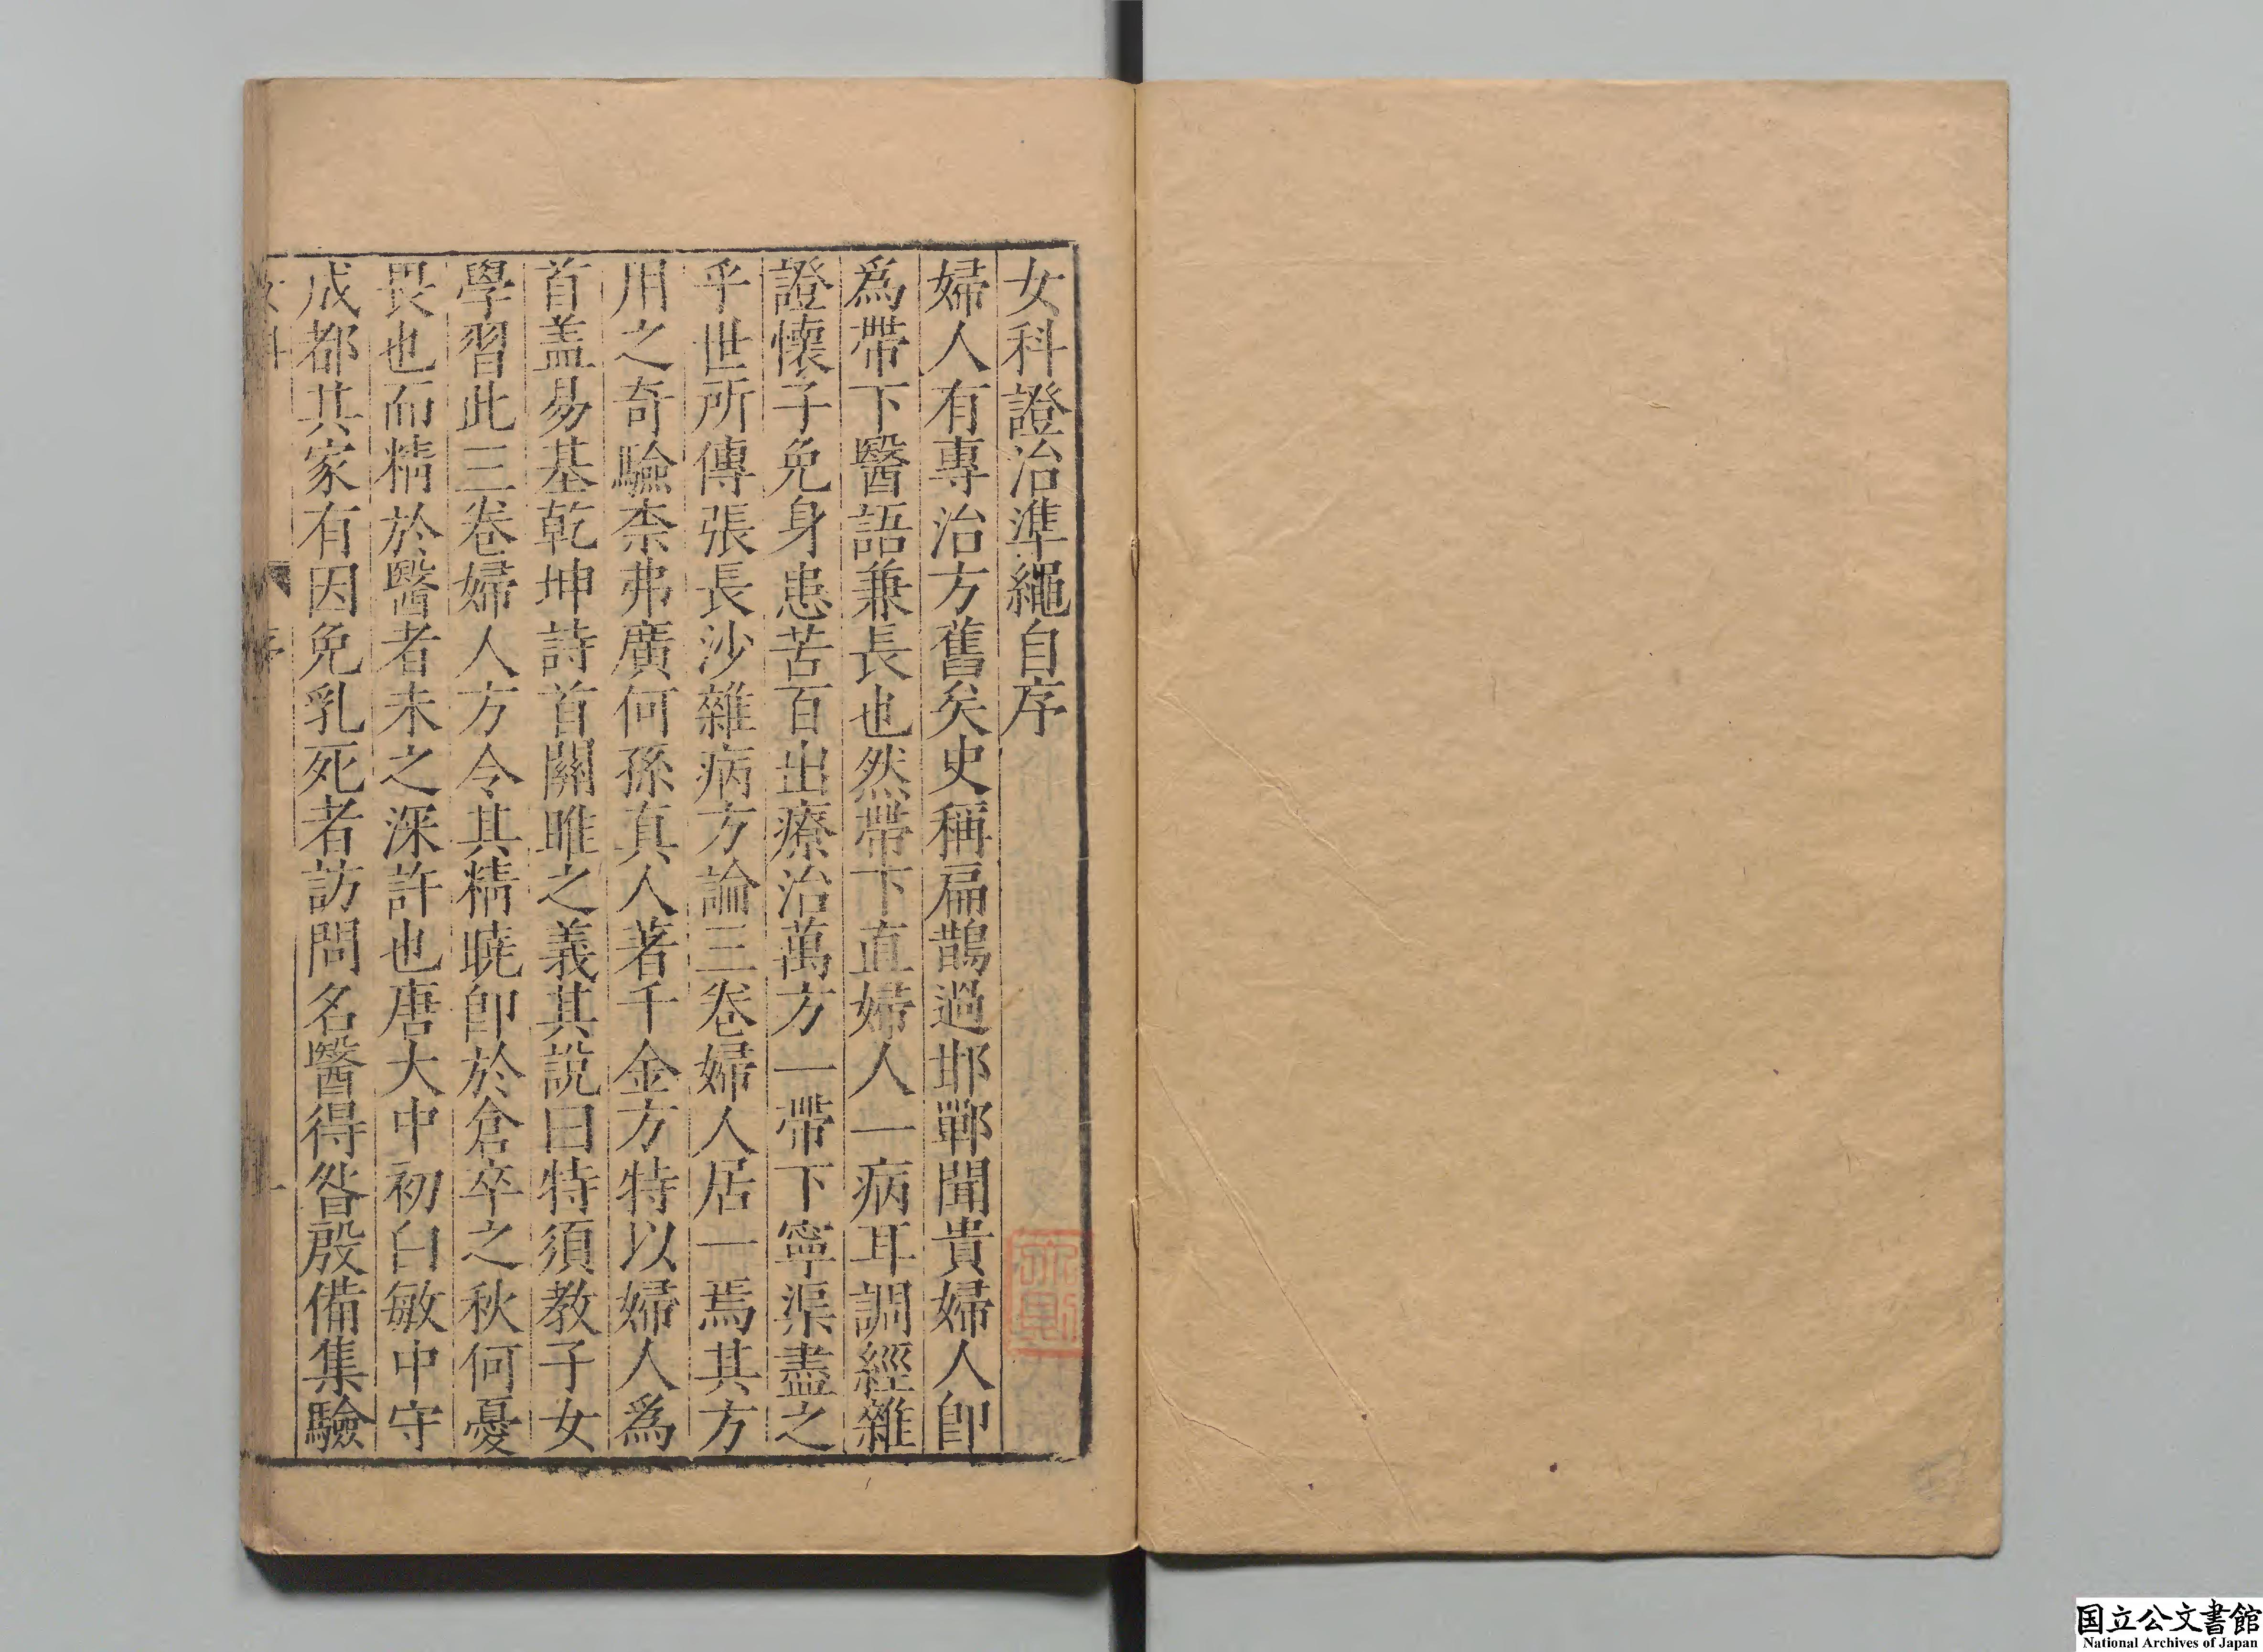 女科證治準繩自序
婦人有專治方舊矣史稱扁鵲過邯鄲聞貴婦人卽
爲帶下醫語兼長也然帶下直婦人一病耳調經雜
證懷子免身患苦百出療治萬方一帶下寧渠盡之
乎世所傳張長沙雜病方論三卷婦人居一焉其方
用之奇驗柰弗廣何孫真人著千金方特以婦人爲
首盖易基乾坤詩首關雎之義其說曰特須教子女
學習此三卷婦人方令其精曉卽於倉卒之秋何憂
畏也而精於醫者未之深許也唐大中初白敏中守
成都其家有因免乳死者訪問名醫得昝殷備集驗
序
国立公文書館
National Archives of Japan